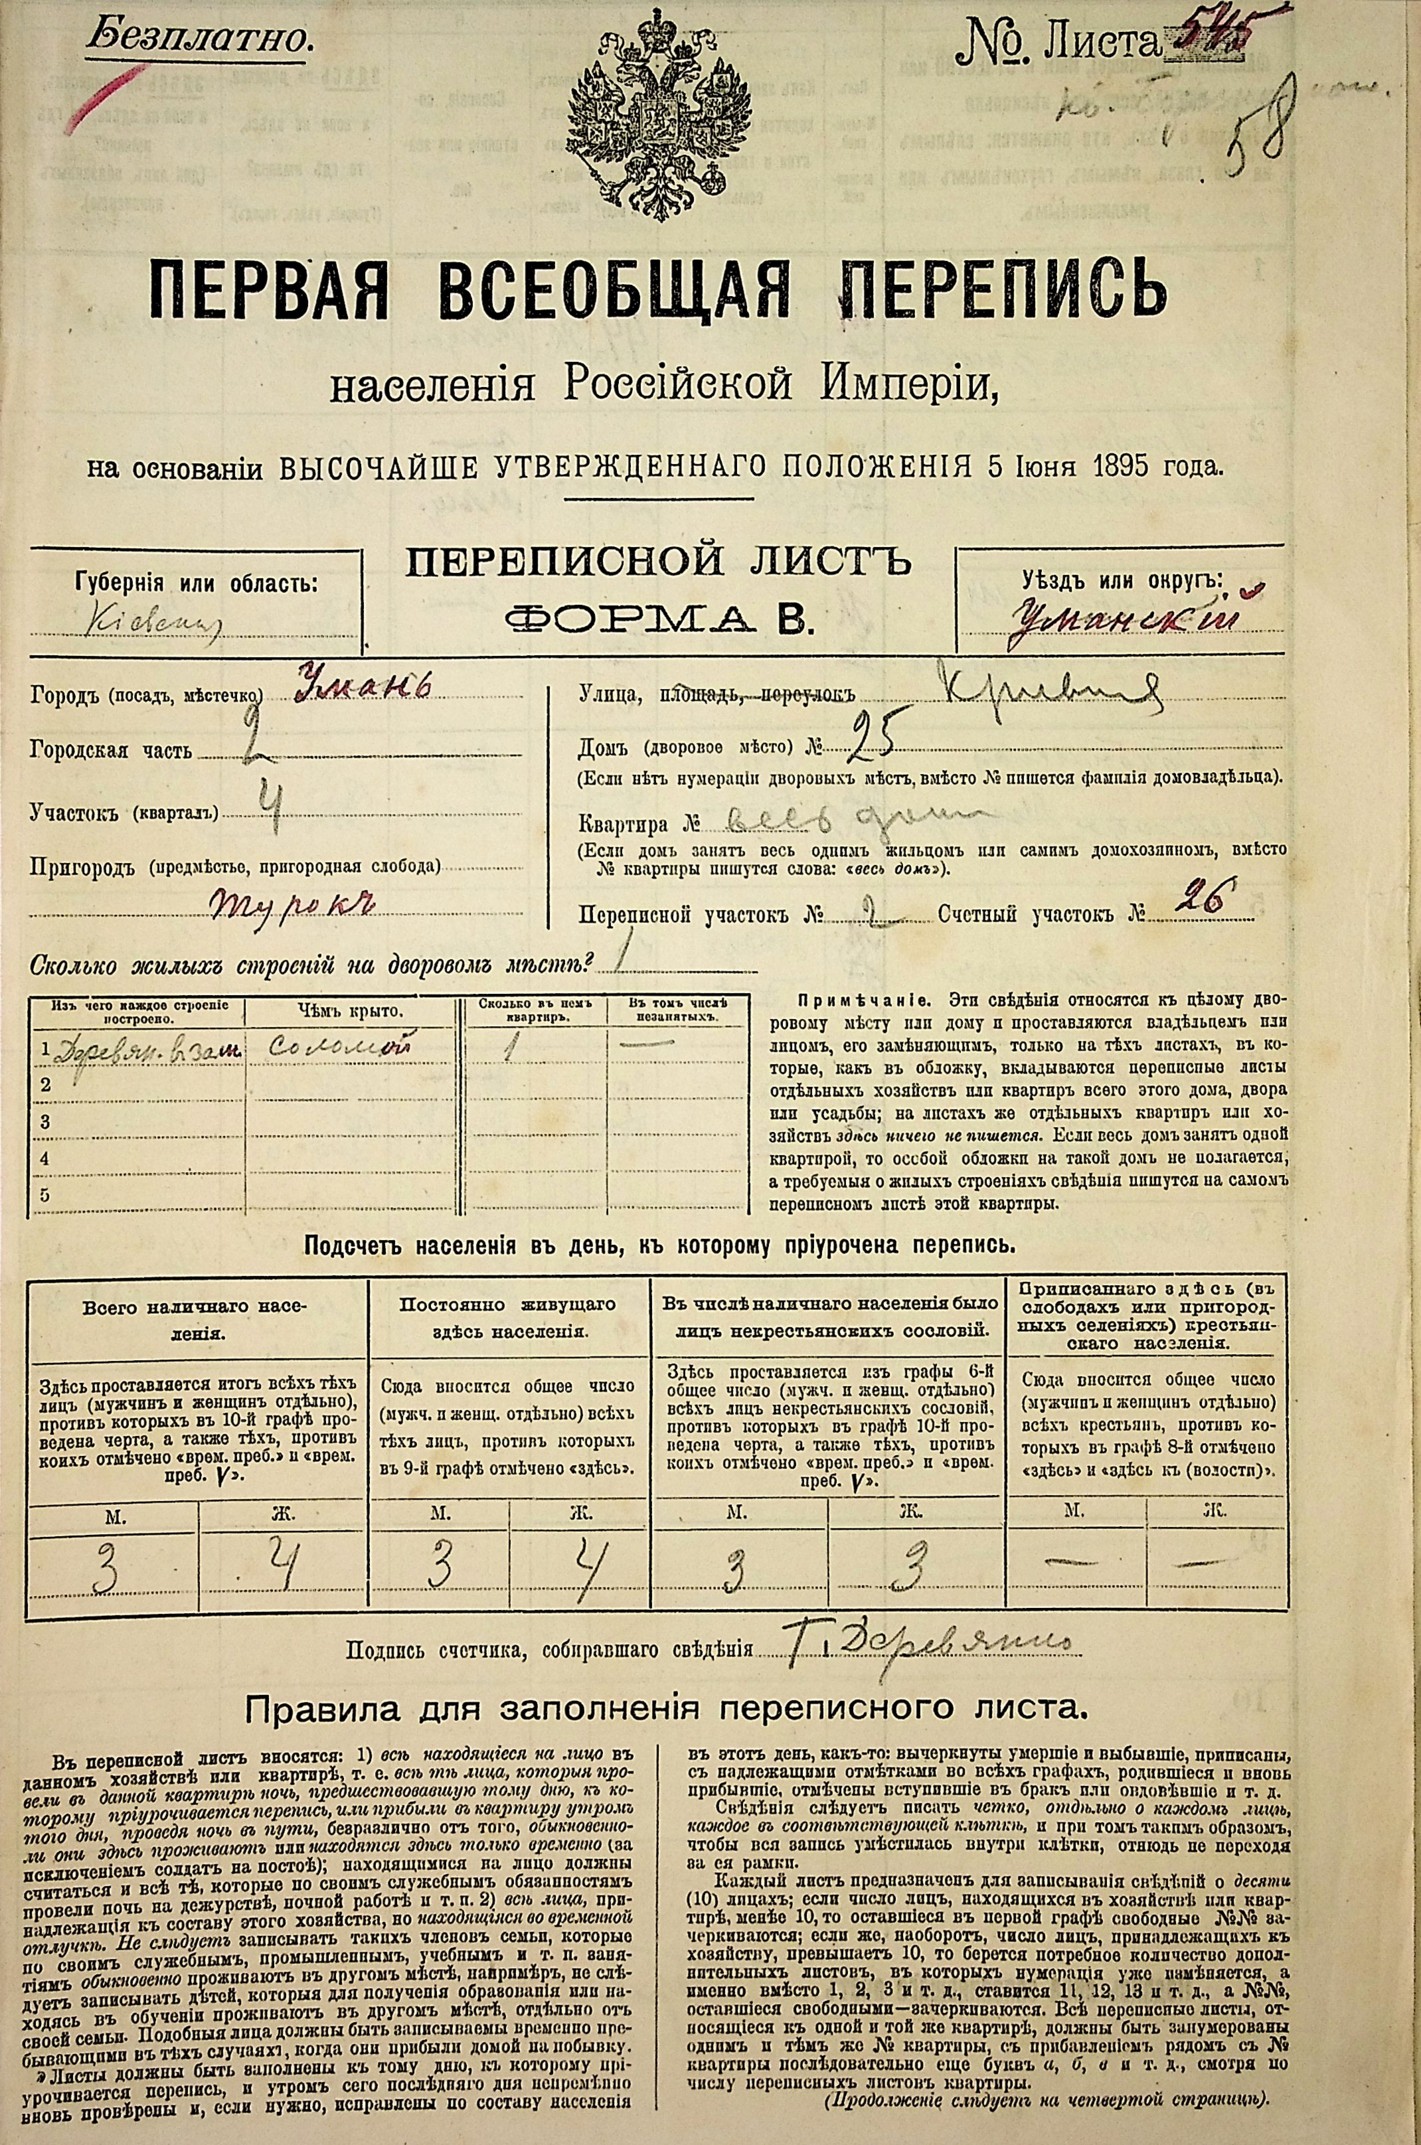 Безплатно.
№. Листа 545
58
ПЕРВАЯ ВСЕОБЩАЯ ПЕРЕПИСЬ
населенія Россійской Имперіи,
на основаніи ВЫСОЧАЙШЕ УТВЕРЖДЕННАГО ПОЛОЖЕНІЯ 5 Іюня 1895 года.
Губернія или область:
Кіевская
ПЕРЕПИСНОЙ ЛИСТЪ
ФОРМА В.
Уѣздъ или округъ:
Уманскій
Городъ (посадъ, мѣстечко) Умань
Городская часть 2
Участокъ (кварталъ) 4
Пригородъ (предмѣстье, пригородная слобода)
Турокъ
Улица, площадь, переулокъ
Домъ (дворовое мѣсто) № 25
(Если нѣтъ нумераціи дворовыхъ мѣстъ, вмѣсто № пишется фамилія домовладѣльца).
Квартира № весь домъ
(Если домъ занятъ весь однимъ жильцомъ или самимъ домохозяиномъ, вмѣсто
№ квартиры пишутся слова: «весь домъ»).
Переписной участокъ № 2 Счетный участокъ № 26
Сколько жилыхъ строеній на дворовомъ мѣстѣ? 1
Изъ чего каждое строеніе построено.
Чѣмъ крыто.
Сколько въ немъ квартиръ.
Въ томъ числѣ незанятыхъ.
1 Деревян. вѣзан. соломой 1 —
2
3
4
5
Примѣчаніе. Эти свѣдѣнія относятся къ цѣлому дво-
ровому мѣсту или дому и проставляются владѣльцемъ или
лицомъ, его замѣняющимъ, только на тѣхъ листахъ, въ ко-
торые, какъ въ обложку, вкладываются переписные листы
отдѣльныхъ хозяйствъ или квартиръ всего этого дома, двора
или усадьбы; на листахъ же отдѣльныхъ квартиръ или хо-
зяйствъ здѣсь ничего не пишется. Если весь домъ занятъ одной
квартирой, то особой обложки на такой домъ не полагается,
а требуемыя о жилыхъ строеніяхъ свѣдѣнія пишутся на самомъ
переписномъ листѣ этой квартиры.
Подсчетъ населенія въ день, къ которому пріурочена перепись.
Всего наличнаго насе-
ленія.
Здѣсь проставляется итогъ всѣхъ тѣхъ
лицъ (мужчинъ и женщинъ отдѣльно),
противъ которыхъ въ 10-й графѣ про-
ведена черта, а также тѣхъ, противъ
коихъ отмѣчено «врем. преб.» и «врем.
преб. V».
Постоянно живущаго
здѣсь населенія.
Сюда вносится общее число
(мужч. и женщ. отдѣльно) всѣхъ
тѣхъ лицъ, противъ которыхъ
въ 9-й графѣ отмѣчено «здѣсь».
Въ числѣ наличнаго населенія было
лицъ некрестьянскихъ сословій.
Здѣсь проставляется изъ графы 6-й
общее число (мужч. и женщ. отдѣльно)
всѣхъ лицъ некрестьянскихъ сословій,
противъ которыхъ въ графѣ 10-й про-
ведена черта, а также тѣхъ, противъ
коихъ отмѣчено «врем. преб.» и «врем.
преб. V».
Приписаннаго здѣсь (въ
слободахъ или пригород-
ныхъ селеніяхъ) крестьян-
скаго населенія.
Сюда вносится общее число
(мужчинъ и женщинъ отдѣльно)
всѣхъ крестьянъ, противъ ко-
торыхъ въ графѣ 8-й отмѣчено
«здѣсь» и «здѣсь къ (волости)».
М. Ж. М. Ж. М. Ж. М. Ж.
3 4 3 4 3 3 — —
Подпись счетчика, собиравшаго свѣдѣнія Г. Деревянно
Правила для заполненія переписного листа.
Въ переписной листъ вносятся: 1) всѣ находящіеся на лицо въ
данномъ хозяйствѣ или квартирѣ, т. е. всѣ тѣ лица, которыя про-
вели въ данной квартирѣ ночь, предшествовавшую тому дню, къ ко-
торому пріурочивается перепись, или прибыли въ квартиру утромъ
того дня, проведя ночь въ пути, безразлично отъ того, обыкновенно-
ли они здѣсь проживаютъ или находятся здѣсь только временно (за
исключеніемъ солдатъ на постоѣ); находящимися на лицо должны
считаться и всѣ тѣ, которые по своимъ служебнымъ обязанностямъ
провели ночь на дежурствѣ, ночной работѣ и т. п. 2) всѣ лица, при-
надлежащія къ составу этого хозяйства, но находящіяся во временной
отлучкѣ. Не слѣдуетъ записывать такихъ членовъ семьи, которые
по своимъ служебнымъ, промышленнымъ, учебнымъ и т. п. заня-
тіямъ обыкновенно проживаютъ въ другомъ мѣстѣ, напримѣръ, не слѣ-
дуетъ записывать дѣтей, которыя для полученія образованія или на-
ходясь въ обученіи проживаютъ въ другомъ мѣстѣ, отдѣльно отъ
своей семьи. Подобныя лица должны быть записываемы временно пре-
бывающими въ тѣхъ случаяхъ, когда они прибыли домой на побывку.
Листы должны быть заполнены къ тому дню, къ которому прі-
урочивается перепись, и утромъ сего послѣдняго дня непремѣнно
вновь провѣрены и, если нужно, исправлены по составу населенія
въ этотъ день, какъ-то: вычеркнуты умершіе и выбывшіе, приписаны,
съ надлежащими отмѣтками во всѣхъ графахъ, родившіеся и вновь
прибывшіе, отмѣчены вступившіе въ бракъ или овдовѣвшіе и т. д.
Свѣдѣнія слѣдуетъ писать четко, отдѣльно о каждомъ лицѣ,
каждое въ соотвѣтствующей клѣткѣ, и при томъ такимъ образомъ,
чтобы вся запись умѣстилась внутри клѣтки, отнюдь не переходя
за ея рамки.
Каждый листъ предназначенъ для записыванія свѣдѣній о десяти
(10) лицахъ; если число лицъ, находящихся въ хозяйствѣ или квар-
тирѣ, менѣе 10, то оставшіеся въ первой графѣ свободные №№ за-
черкиваются; если же, наоборотъ, число лицъ, принадлежащихъ къ
хозяйству, превышаетъ 10, то берется потребное количество допол-
нительныхъ листовъ, въ которыхъ нумерація уже измѣняется, а
именно вмѣсто 1, 2, 3 и т. д., ставится 11, 12, 13 и т. д., а №№,
оставшіеся свободными—зачеркиваются. Всѣ переписные листы, от-
носящіеся къ одной и той же квартирѣ, должны быть занумерованы
однимъ и тѣмъ же № квартиры, съ прибавленіемъ рядомъ съ №
квартиры послѣдовательно еще буквъ а, б, в и т. д., смотря по
числу переписныхъ листовъ квартиры.
(Продолженіе слѣдуетъ на четвертой страницѣ).